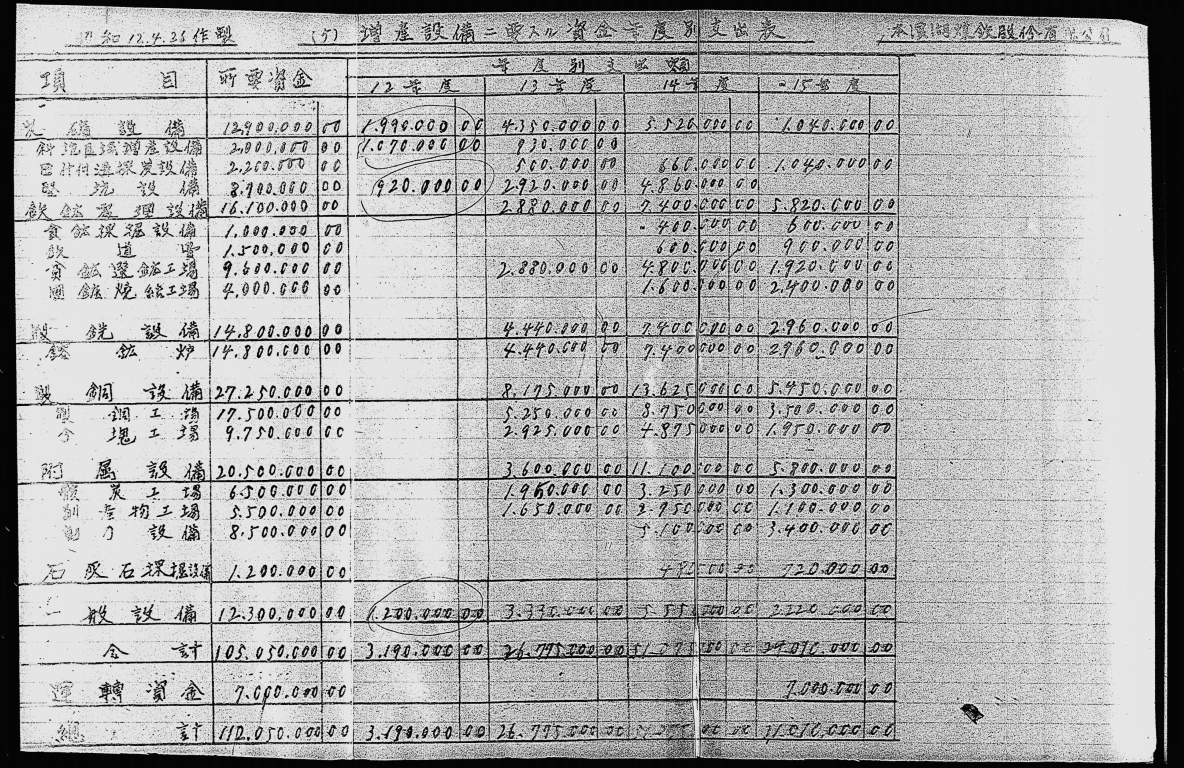 昭和12.4.26作製 (5) 増産設備ニ要スル資金年度別支出表 本溪湖煤鉄股份有限公司
項目 所要資金 年度別支出額
12年度 13年度 14年度 15年度
採礦設備 12.900.000 00 1.990.000 00 4.350.000 00 5.520.000 00 1.040.000 00
斜坑区域増産設備 2.000.000 00 1.070.000 00 930.000 00
採炭設備 2.200.000 00 500.000 00 660.000 00 1.040.000 00
竪坑設備 8.700.000 00 920.000 00 2.920.000 00 4.860.000 00
鉄鉱処理設備 16.100.000 00 2.880.000 00 7.400.000 00 5.820.000 00
貧鉱採掘設備 1.000.000 00 400.000 00 600.000 00
鉄道費 1.500.000 00 600.000 00 900.000 00
貧鉱選鉱工場 9.600.000 00 2.880.000 00 4.800.000 00 1.920.000 00
団鉱焼結工場 4.000.000 00 1.600.000 00 2.400.000 00
製銑設備 14.800.000 00 4.440.000 00 7.400.000 00 2.960.000 00
鎔鉱炉 14.800.000 00 4.440.000 00 7.400.000 00 2.960.000 00
製鋼設備 27.250.000 00 8.175.000 00 13.625.000 00 5.450.000 00
製鋼工場 17.500.000 00 5.250.000 00 8.750.000 00 3.500.000 00
分塊工場 9.750.000 00 2.925.000 00 4.875.000 00 1.950.000 00
附属設備 20.500.000 00 3.600.000 00 11.100.000 00 5.800.000 00
骸炭工場 6.500.000 00 1.950.000 00 3.250.000 00 1.300.000 00
副産物工場 5.500.000 00 1.650.000 00 2.750.000 00 1.100.000 00
動力設備 8.500.000 00 5.100.000 00 3.400.000 00
石灰石採掘設備 1.200.000 00 480.000 00 720.000 00
一般設備 12.300.000 00 1.200.000 00 3.330.000 00 5.550.000 00 2.220.000 00
合計 105.050.000 00 3.190.000 00 26.775.000 00 51.075.000 00 24.010.000 00
運転資金 7.000.000 00 7.000.000 00
総計 112.050.000 00 3.190.000 00 26.775.000 00 31.010.000 00